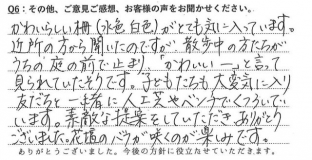 Q6：その他、ご意見ご感想、お客様の声をお聞かせください。
かわいらしい柵（水色白色）がとても気に入っています。
近所の方から聞いたのですが、散歩中の方たちが
うちの庭の前で止まり、「かわいいー」と言って
見られていたそうです。子どもたちも大変気に入り
友だちと一緒に人工芝やベンチでくつろいで
います。素敵な提案をしていただきありがとう
ございました。花壇のバラが咲くのが楽しみです。
ありがとうございました。今後の方針に役立たせていただきます。